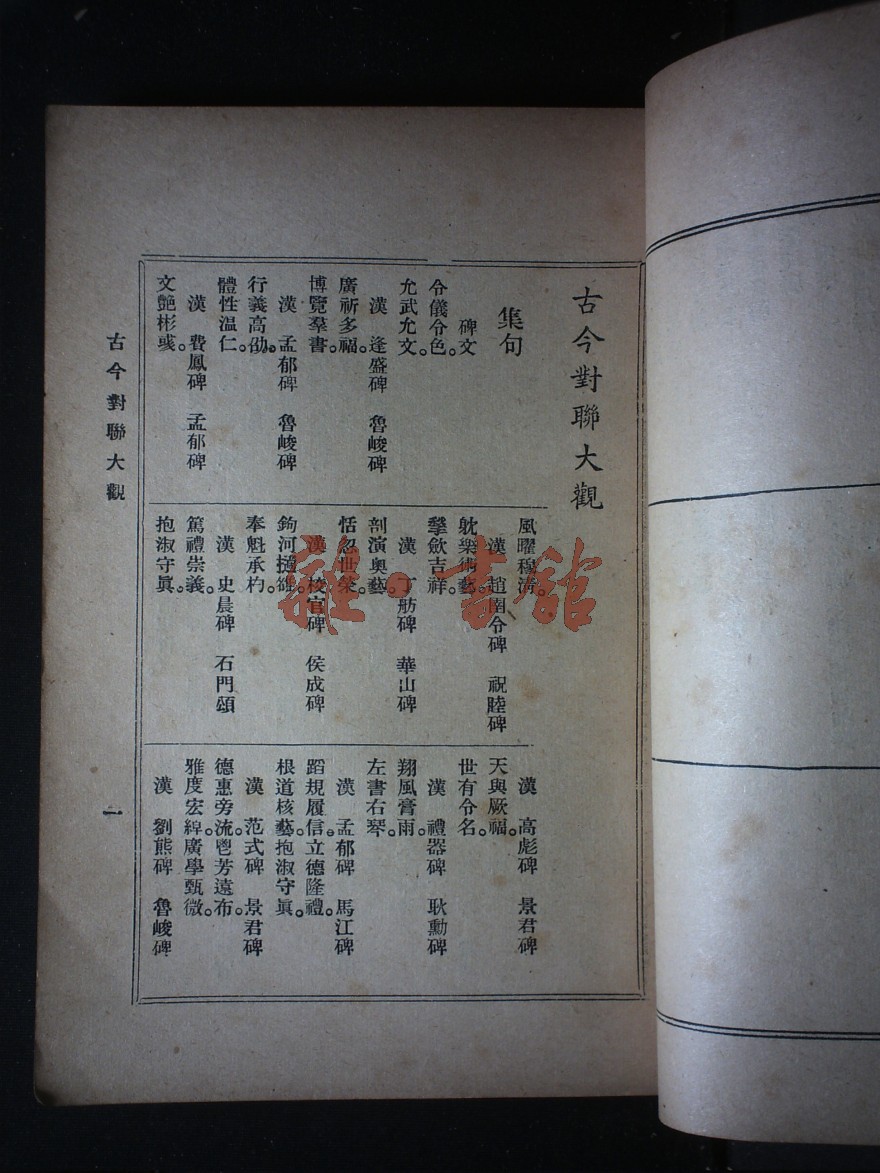 古今對聯大觀
集句
碑文
令儀令色。
允武允文。
漢 逢盛碑 魯峻碑
廣祈多福。
博覽羣書。
漢 孟郁碑 魯峻碑
行義高劭。
體性温仁。
漢 費鳳碑 孟郁碑
文艶彬彧。
風曜穆清。
漢 趙圉令碑 祝睦碑
躭樂術藝。
擥斂吉祥。
漢 丁舫碑 華山碑
剖演奧藝。
恬忽世榮。
漢 校官碑 侯成碑
鉤河擿雒。
奉魁承杓。
漢 史晨碑 石門頌
篤禮崇義。
抱淑守眞。
漢 高彪碑 景君碑
天與厥福。
世有令名。
漢 禮器碑 耿勳碑
翔風膏雨。
左書右琴。
漢 孟郁碑 馬江碑
蹈規履信。立德隆禮。
根道核藝。抱淑守眞。
漢 范式碑 景君碑
德惠旁流。鬯芳遠布。
雅度宏綽。廣學甄微。
漢 劉熊碑 魯峻碑
古今對聯大觀
一
雜·書館